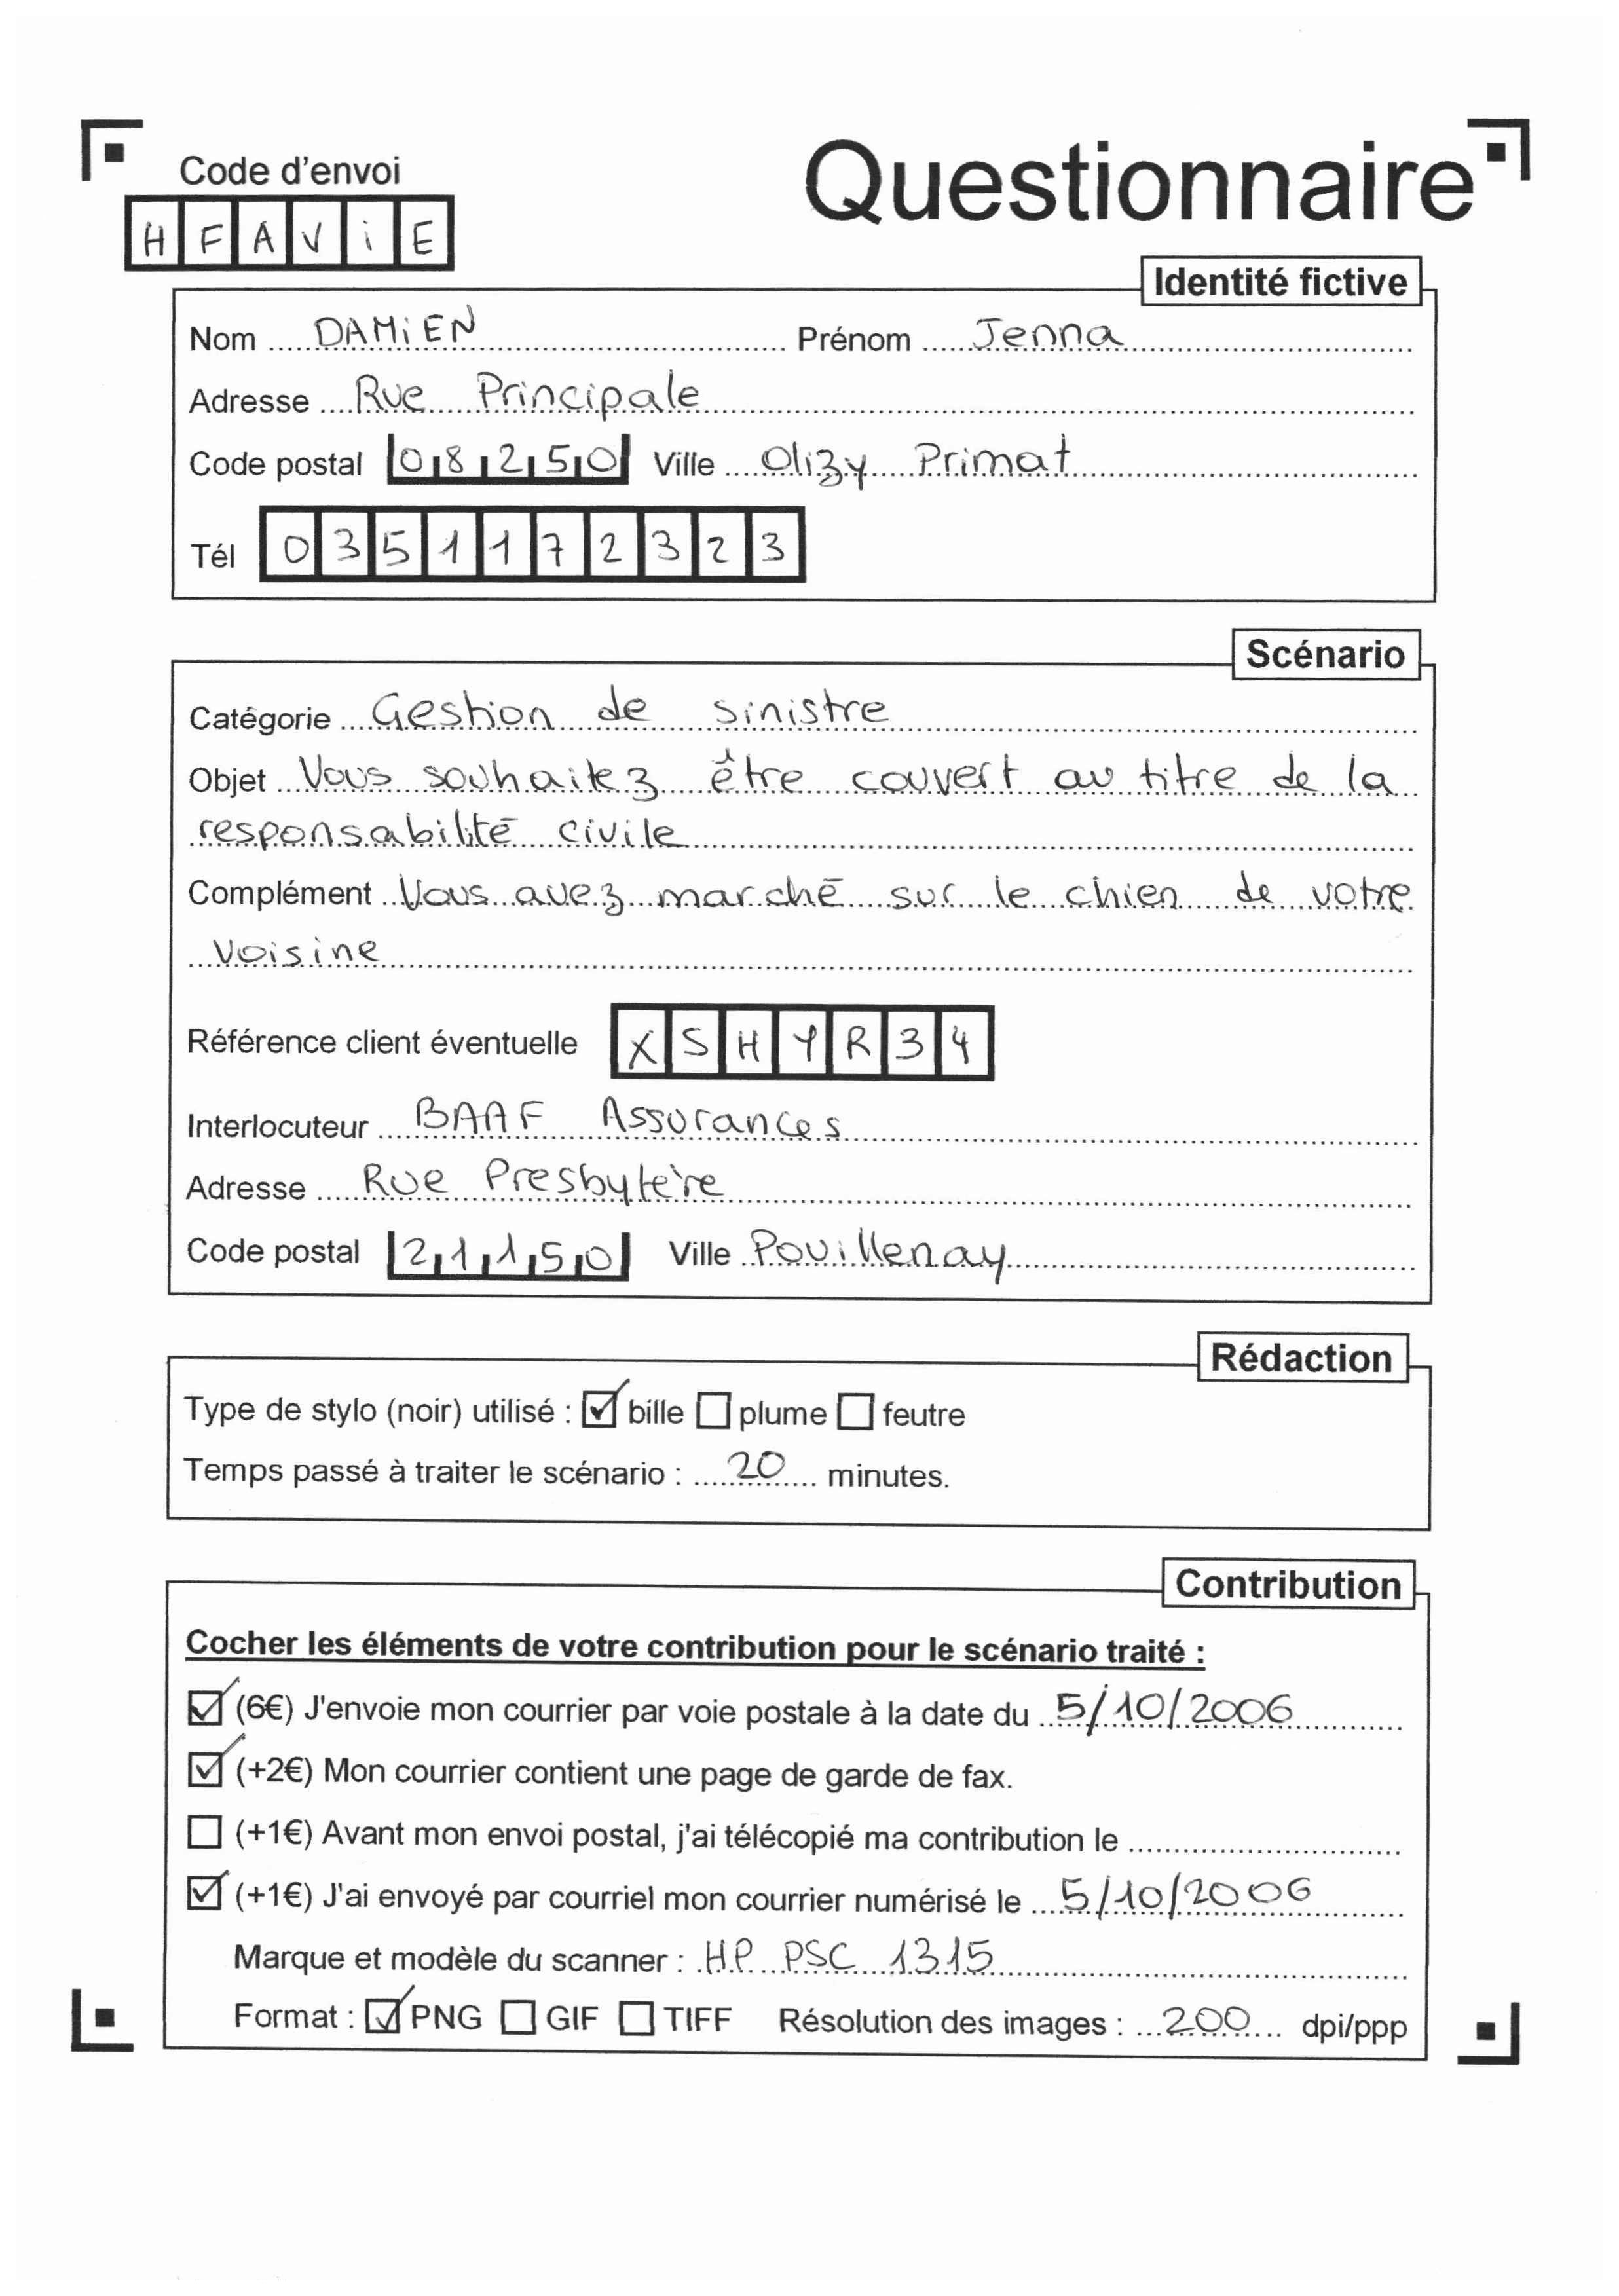 Code d'envoi
Questionnaire
HFAViE
Identité fictive
Nom DAMiEN Prénom Jenna
Adresse Rue Principale
Code postal 08250 Ville Olizy Primat
Tél 0351172323
Scénario
Catégorie Gestion de sinistre
Objet Vous souhaitez être couvert au titre de la
responsabilité civile
Complément Vous avez marché sur le chien de votre
voisine
Référence client éventuelle XSHYR34
Interlocuteur BAAF Assurances
Adresse Rue Presbytère
Code postal 21150 Ville Pouillenay
Rédaction
Type de stylo (noir) utilisé : ☑ bille ☐ plume ☐ feutre
Temps passé à traiter le scénario : 20 minutes.
Contribution
Cocher les éléments de votre contribution pour le scénario traité :
☑ (6€) J'envoie mon courrier par voie postale à la date du 5/10/2006
☑ (+2€) Mon courrier contient une page de garde de fax.
☐ (+1€) Avant mon envoi postal, j'ai télécopié ma contribution le
☑ (+1€) J'ai envoyé par courriel mon courrier numérisé le 5/10/2006
Marque et modèle du scanner : HP PSC 1315
Format : ☑ PNG ☐ GIF ☐ TIFF Résolution des images : 200 dpi/ppp